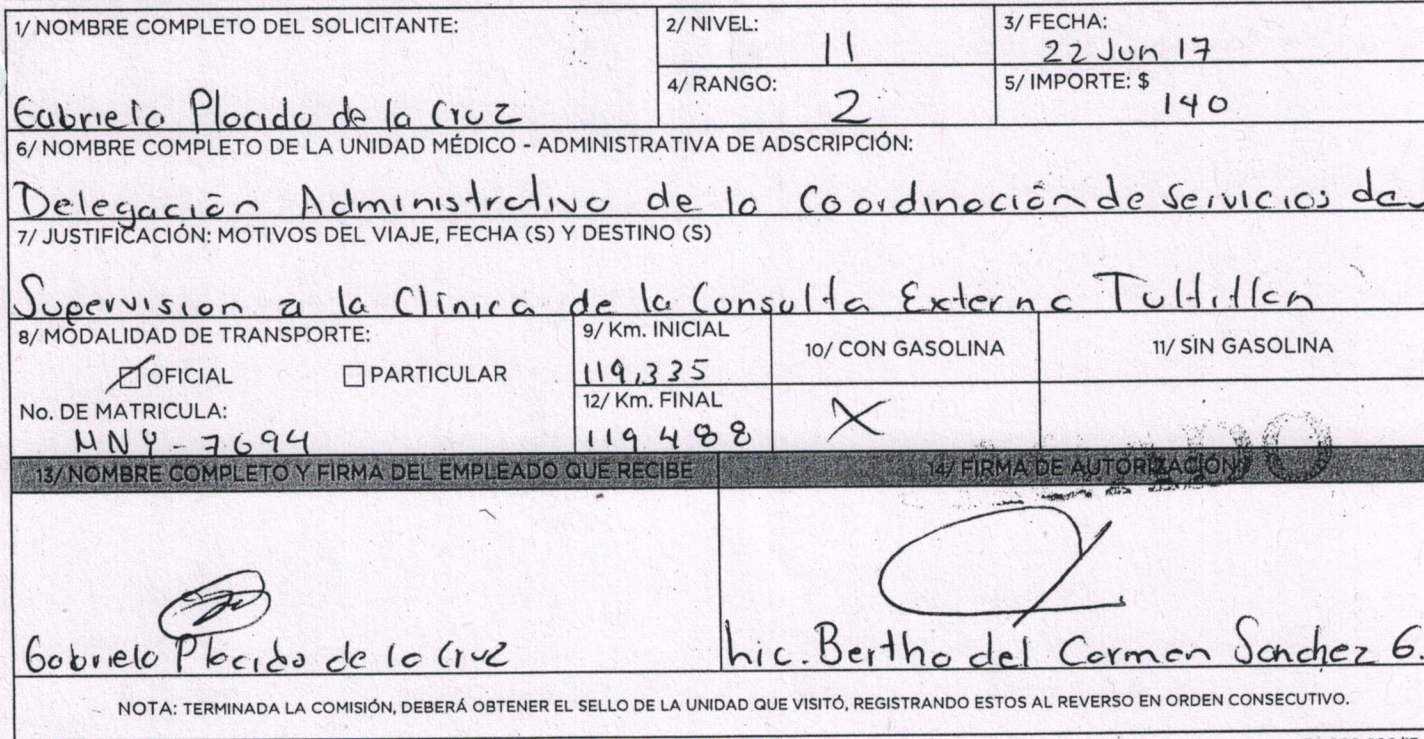 1/ NOMBRE COMPLETO DEL SOLICITANTE:
Gabriela Placido de la Cruz
2/ NIVEL:
11
3/ FECHA:
22 Jun 17
4/ RANGO:
2
5/ IMPORTE: $
140
6/ NOMBRE COMPLETO DE LA UNIDAD MÉDICO - ADMINISTRATIVA DE ADSCRIPCIÓN:
Delegación Administrativa de la Coordinación de Servicios de
7/ JUSTIFICACIÓN: MOTIVOS DEL VIAJE, FECHA (S) Y DESTINO (S)
Supervision a la Clinica de la Consulta Externa Tultitlan
8/ MODALIDAD DE TRANSPORTE:
OFICIAL PARTICULAR
No. DE MATRICULA:
MNY-7694
9/ Km. INICIAL
119,335
12/ Km. FINAL
119488
10/ CON GASOLINA
X
11/ SIN GASOLINA
13/ NOMBRE COMPLETO Y FIRMA DEL EMPLEADO QUE RECIBE
Gabriela Placido de la Cruz
14/ FIRMA DE AUTORIZACIÓN
Lic. Bertha del Carmen Sanchez G.
NOTA: TERMINADA LA COMISIÓN, DEBERÁ OBTENER EL SELLO DE LA UNIDAD QUE VISITÓ, REGISTRANDO ESTOS AL REVERSO EN ORDEN CONSECUTIVO.